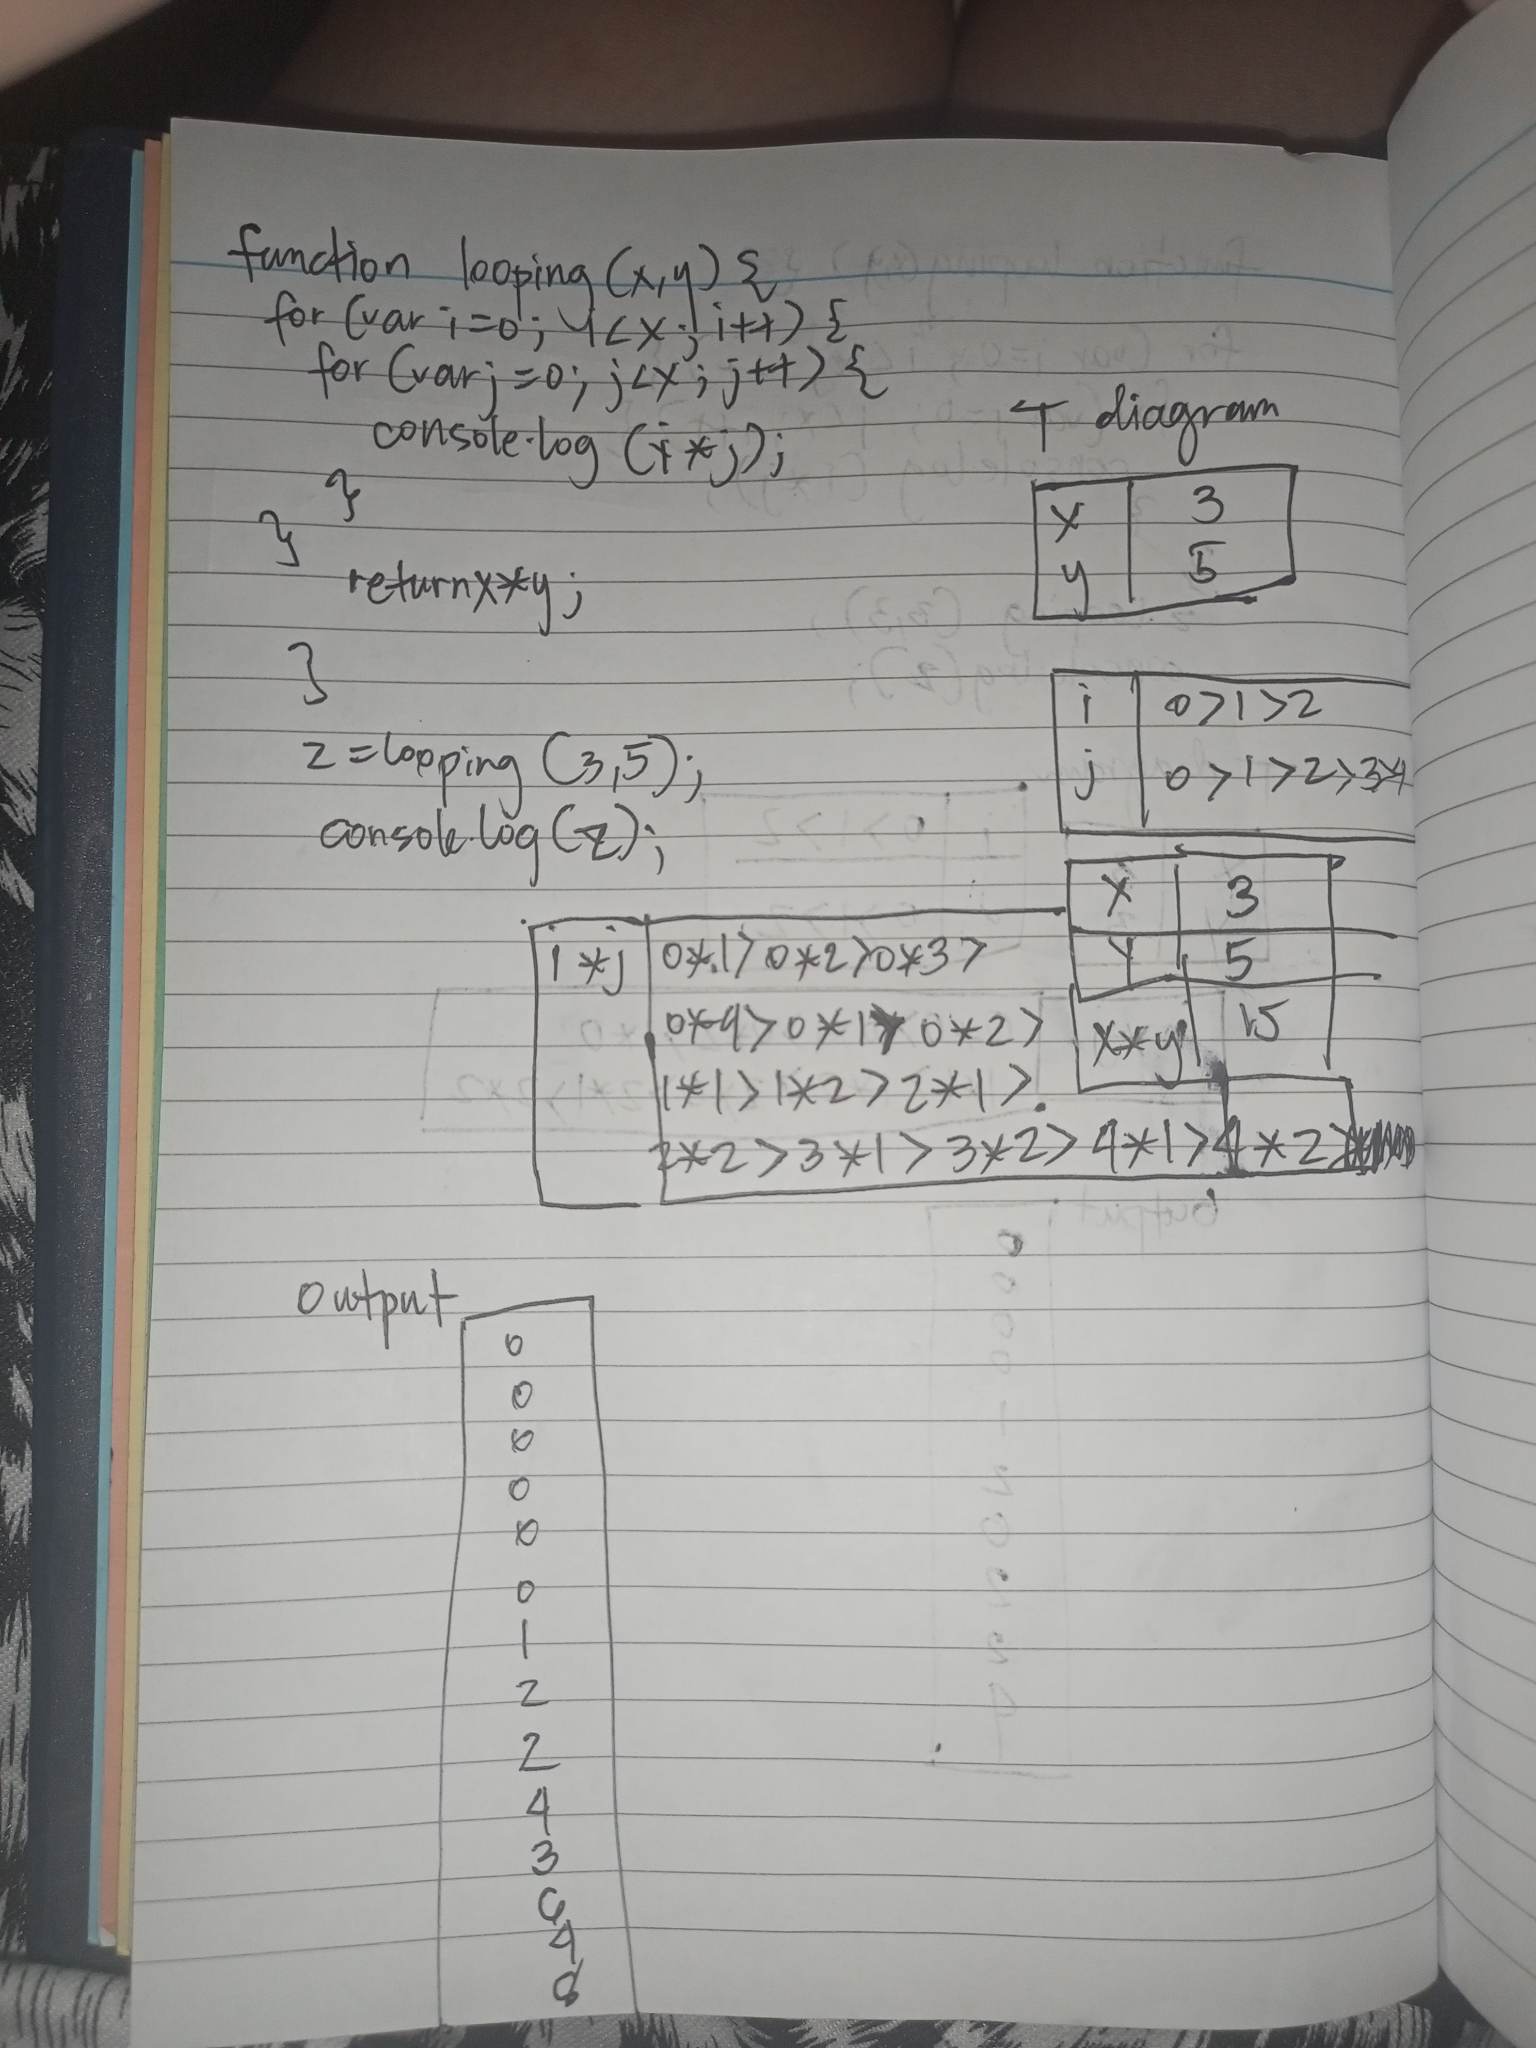 function looping (x,y) {
for (var i=0; i<x; i++) {
for (var j=0; j<x; j++) {
console.log (i*j);
}
}
return x*y;
}
z = looping (3,5);
console.log(z);
T diagram
x 3
y 5
i 0>1>2
j 0>1>2>3>4
x 3
Y 5
x*y 15
i*j 0*1>0*2>0*3>
0*4>0*1>0*2>
1*1>1*2>2*1>
2*2>3*1>3*2>4*1>4*2>
Output
0
0
0
0
0
0
1
2
2
4
3
6
4
8